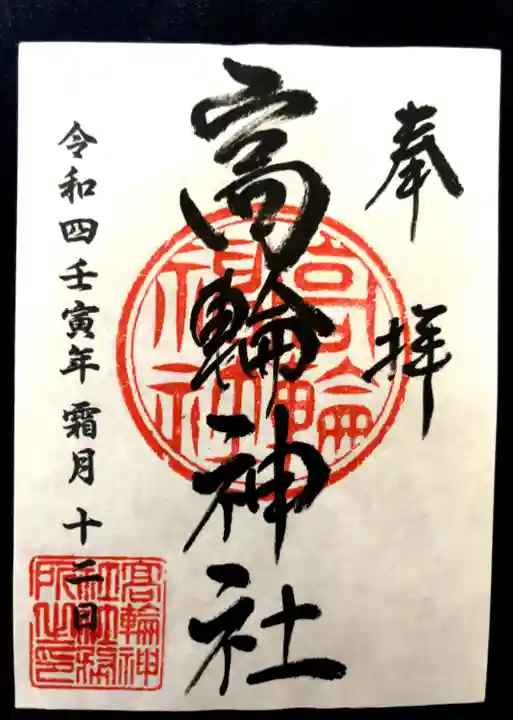 奉拝
高輪神社
令和四壬寅年 霜月 十二日
高輪神社
高輪神社社務所之印